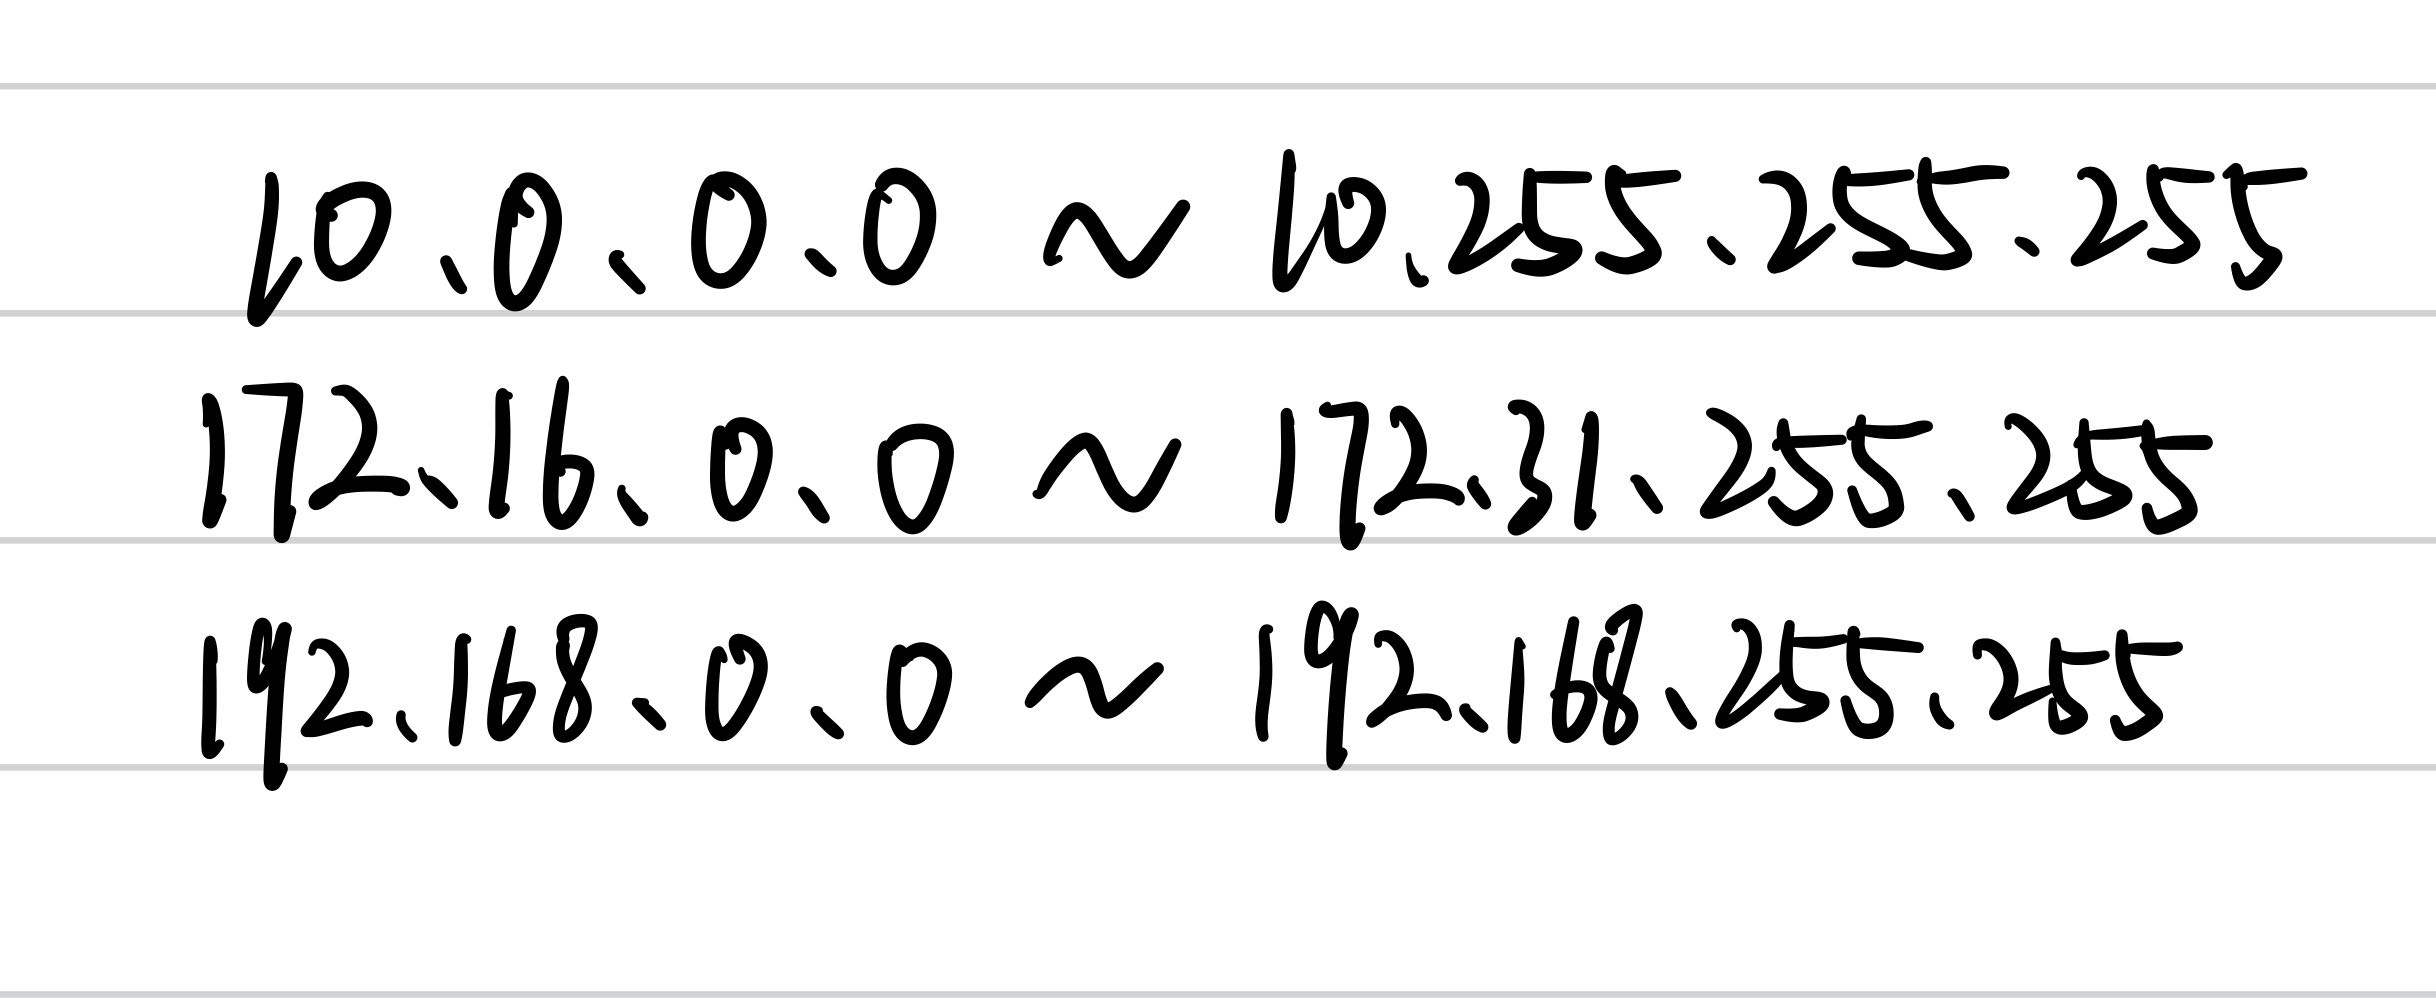 10.0.0.0 ~ 10.255.255.255
172.16.0.0 ~ 172.31.255.255
192.168.0.0 ~ 192.168.255.255